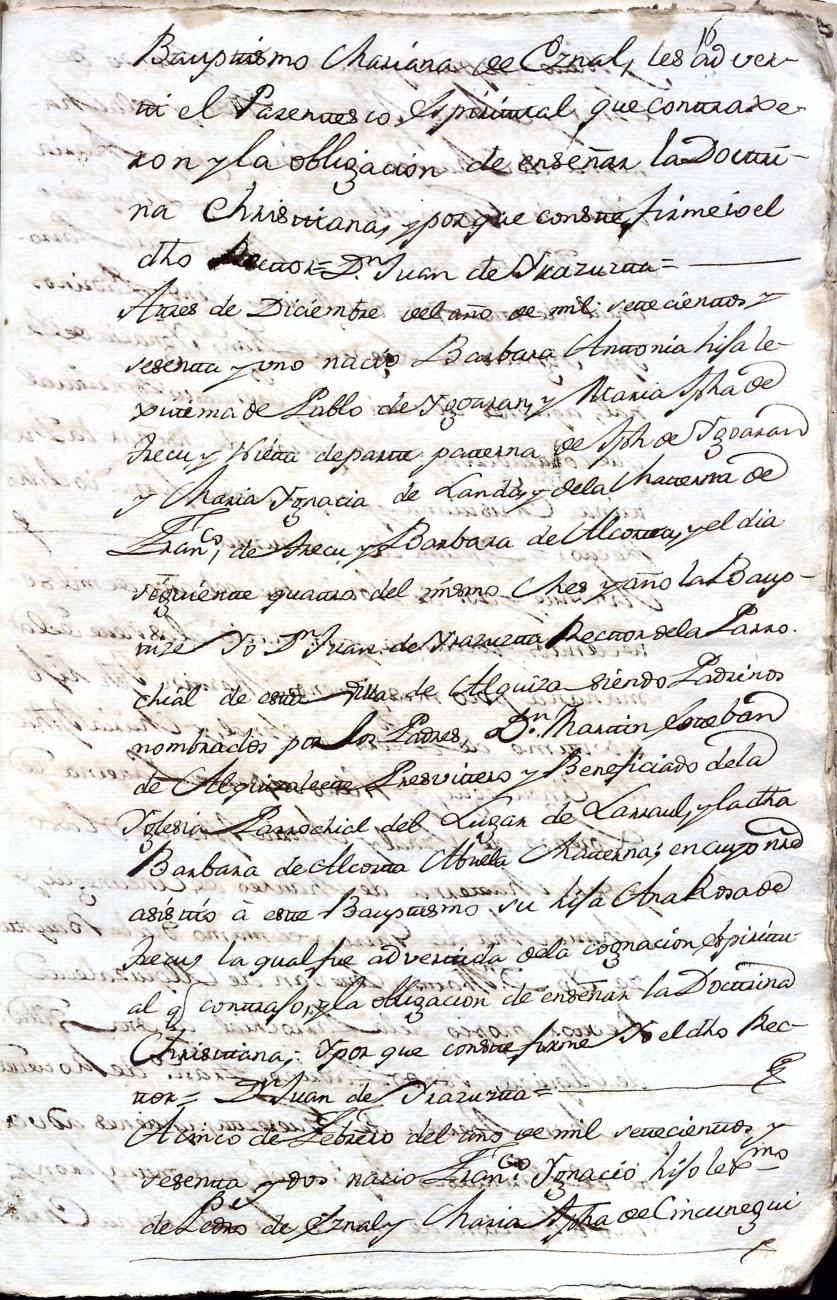 16
Baptismo Mariana de Eznal, les adver-
ti el Parentesco Espiritual que contraxe-
ron y la obligación de enseñar la Doctri-
na Christiana, y porque conste, firme io el
dho Rector= Dn Juan de Yrazuzta=
A tres de Diciembre del año de mil setecientos y
sesenta y uno nació Barbara Antonia hija le-
xitima de Pablo de Ygoaran, y Maria Jpha de
Frecu y Nieta de parte paterna de Jph de Ygoaran
y Maria Ygnacia de Landa, y dela Materna de
Franco, de Frecu, y Barbara de Alcorta, y el dia
siguiente quatro del mismo Mes y año la Bap-
tize Yo Dn Juan de Yrazuzta Rector dela Parro-
chial de esta villa de Alquiza siendo Padrinos
nombrados por los Padres, Dn Martin Esteban
de Alquizalete Presvitero y Beneficiado dela
Yglesia Parrochial del Lugar de Larraul, y la dha
Barbara de Alcorta Abuela Materna; en cuyo nre
asistió à este Baptismo su hija Ana Rosa de
Frecu, la qual fue advertida dela cognación Espiritu-
al q contrajo, y la obligacion de enseñar la Doctrina
Christiana; y por que conste firme Yo el dho Rec-
tor= Dn Juan de Yrazuzta=
A cinco de Febrero del año de mil setecientos y
sesenta y dos nació Franco Ygnacio hijo lexmo
de Pedro de Eznal y Maria Jpha de Cincunegui